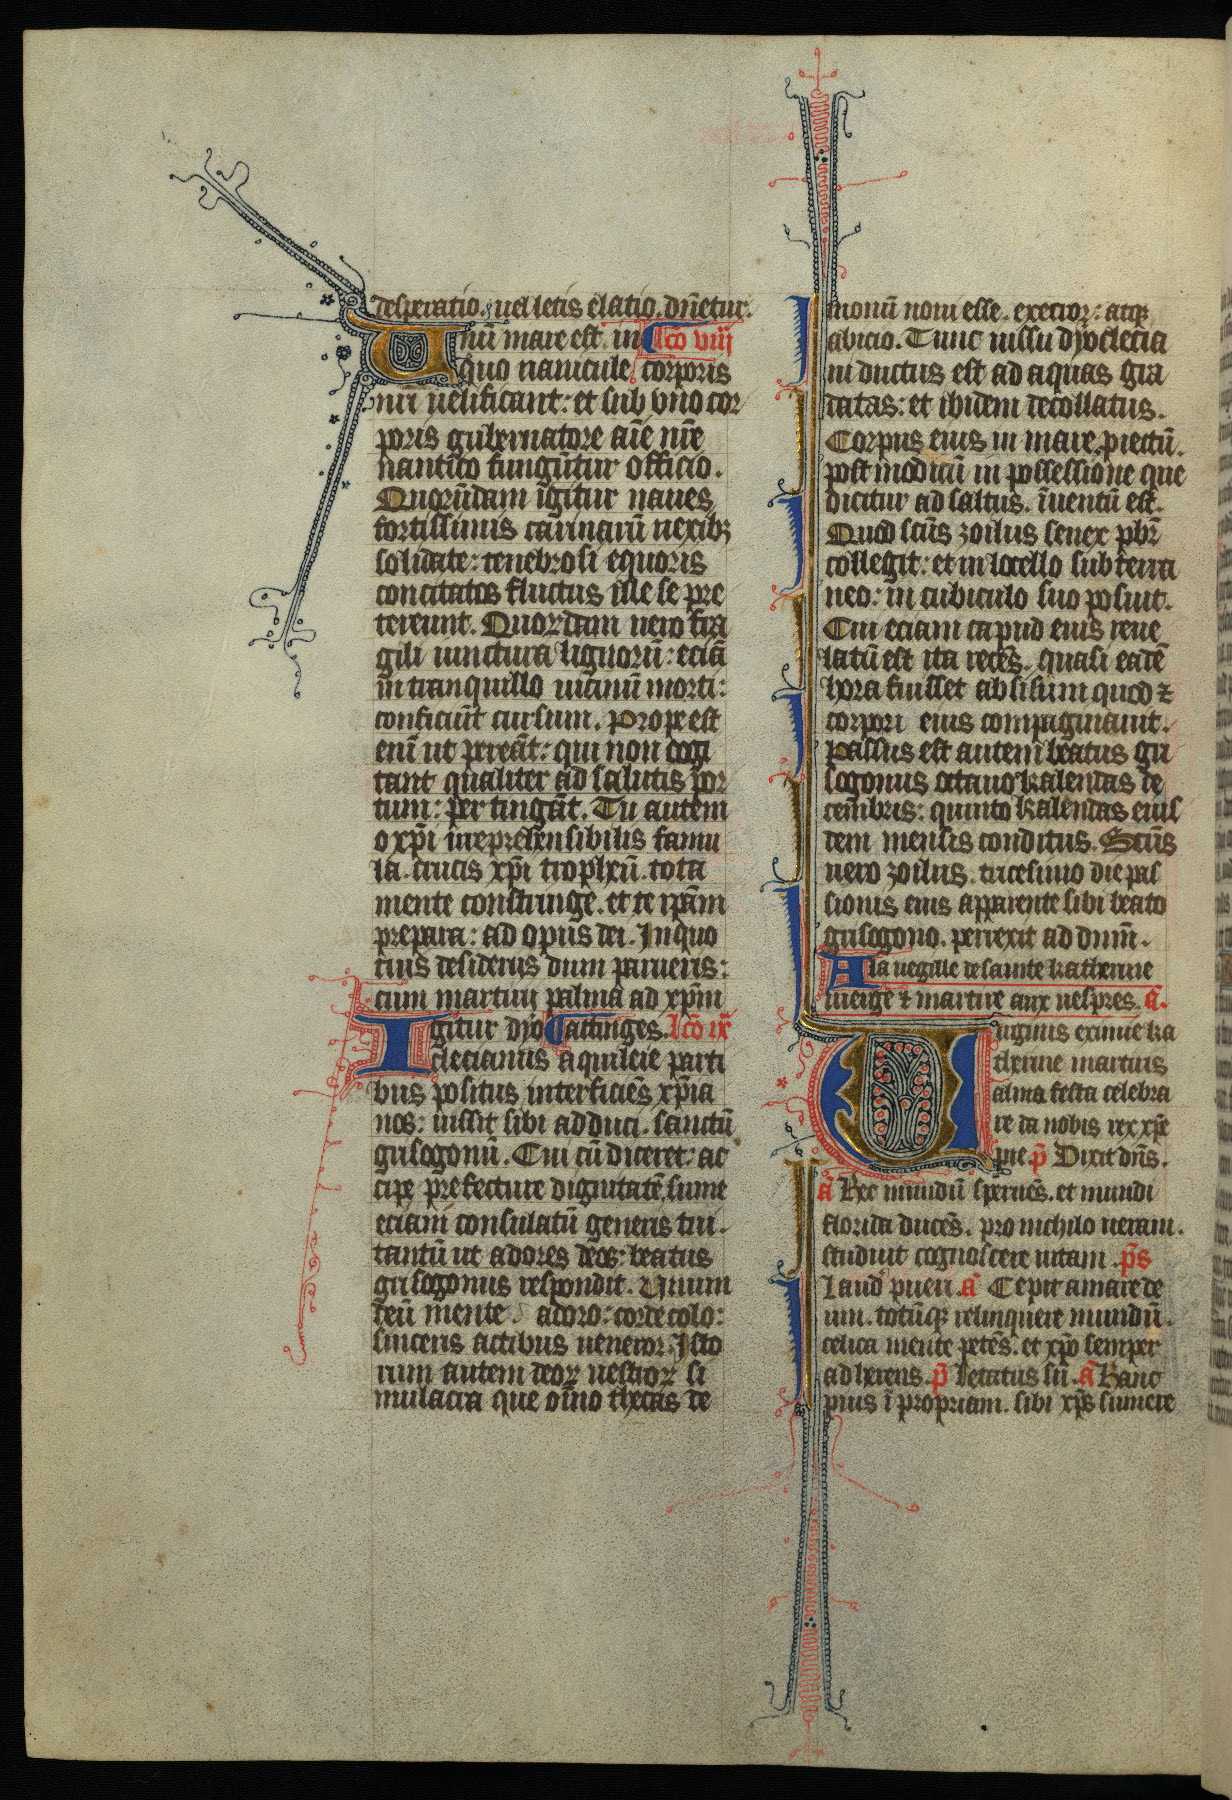 desperatio. uel letis elatio. dn̄etur.
Unū mare est. in lc̄o viii
quo nauicule corporis
nr̄i uelificant: et sub vno cor
poris gubernatore aīe nr̄e
nantiū funguntur officio.
Quorūdam īgitur naues
fortissimis carinarū nexibꝫ
solidate: tenebrosi equoris
concitatos fluctus ille se pre
tereunt. Quordam uero fra
gili iunctura lignorū: eciā
in tranquillo uicinū morti:
conficiūt cursum. Prope est
enī ut pereāt: qui non cogi
tant qualiter ad salutis por
tum: per tingāt. Tu autem
o xp̄i irreprehensibilis famu
la. crucis xp̄i tropheū. tota
mente constringe. et te ip̄am
prepara: ad opus dei. In quo
cius desiderus dum parueris:
cum martirii palmā ad xp̄m
Igitur dyo attinges. lc̄o ix
clecianus aquileie parti
bus positus interficiēs xp̄ia
nos: iussit sibi adduci. sanctū
grisogonū. Cui cū diceret: ac
cipe prefecture dignitatē sume
eciam consulatū generis tui.
tantū ut adores deos: beatus
grisogonus respondit. Unum
deū mente adoro: corde colo:
sinceris actibus ueneror. Isto
rum autem deoꝝ uestroꝝ si
mulacra que oīno thecas de
monū noui esse. execror: atqꝫ
abicio. Tunc iussu dyoclecia
ni ductus est ad aquas gra
datas: et ibidem decollatus.
Corpus eius in mare proiectū.
post modicū in possessione que
dicitur ad saltus. īuentū est.
Quod scūs zoilus senex pbr̄
collegit: et in locello subterra
neo: in cubiculo suo posuit.
Cui eciam capud eius reue
latū est ita recēs. quasi eadē
hora fuisset abscisum quod ⁊
corpori eius compaginauit.
Passus est autem beatus gri
sogonus octauo kalendas de
cembris: quinto kalendas eius
dem mensis conditus. Scūs
uero zoilus. tricesimo die pas
sionis eius apparente sibi beato
grisogono. perrexit ad dnm̄.
A la uegille de sainte katherine
uierge ⁊ martire aux uespres. ā.
Uirginis eximie ka
therine martiris
alma festa celebra
re da nobis rex xp̄e
pie. p̄ Dixit dn̄s.
ā Hec mundū spernēs. et mundi
florida ducēs. pro nichilo ueram.
studuit cognoscere uitam. p̄s
Laud pueri. ā Cepit amare de
um. totūqꝫ relinquere mundū.
celica mente petēs. et xp̄o semper
adherens. p̄ Letatus sū. ā Hanc
pius ī propriam. sibi xp̄s sumere